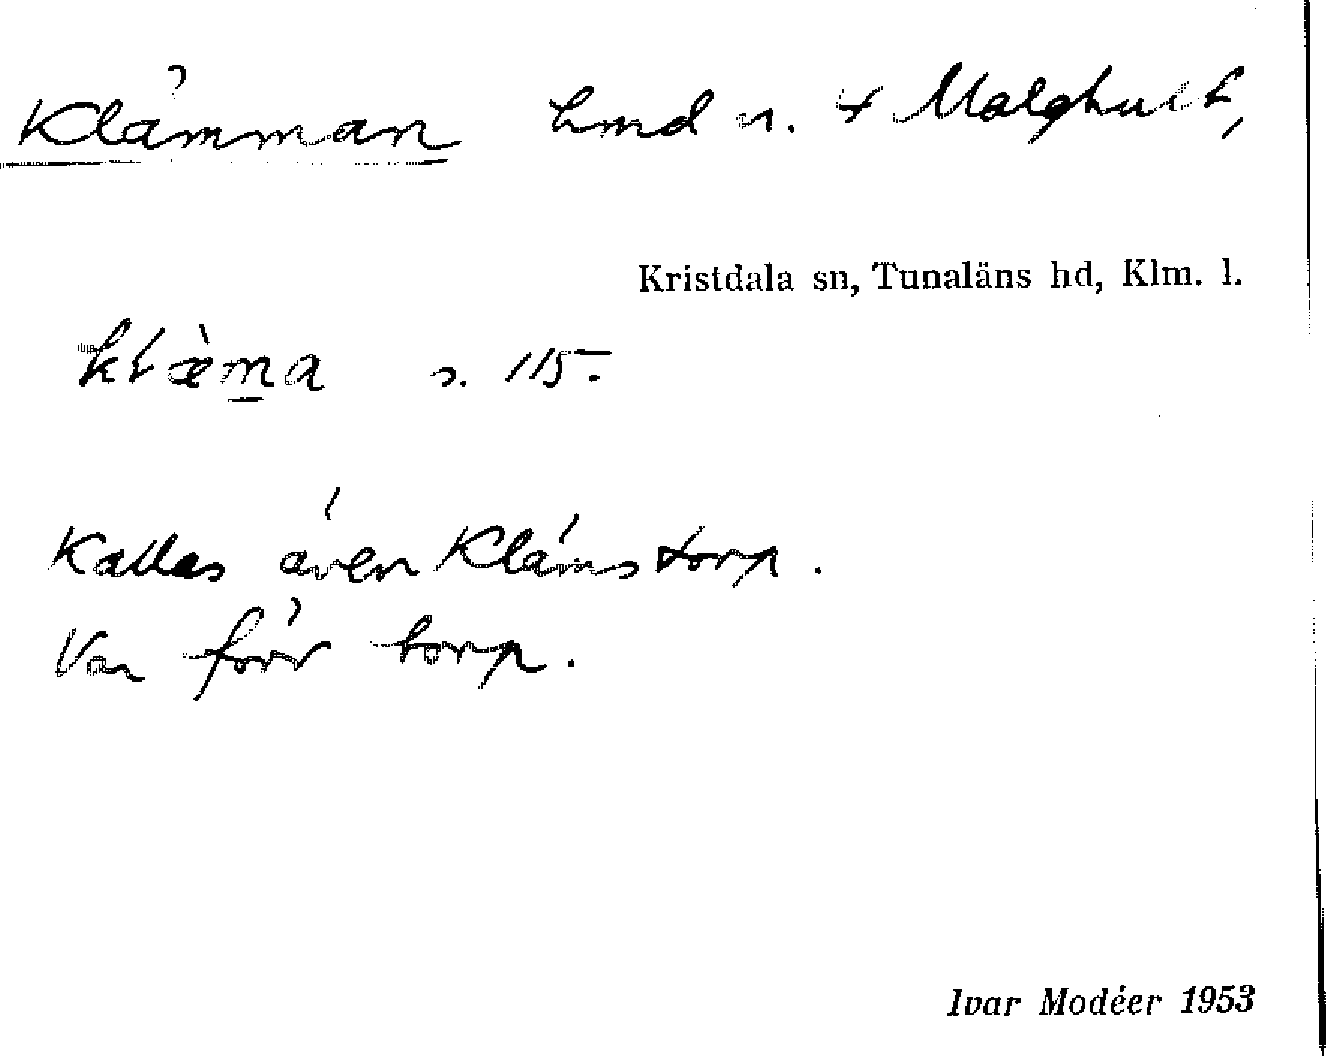 Klämman lmd u. + Malghult,
Kristdala sn, Tunaläns hd, Klm. l.
klæ̀ma s. 115.
Kallas även Klämstorp.
Var förr torp.
Ivar Modéer 1953